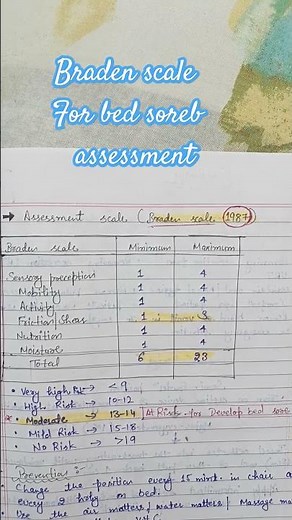 Braden scale
For bed soreb
assessment
→ Assessment scale (Braden scale 1987)
Braden scale Minimum Maximum
Sensory preception 1 4
Mobility 1 4
Activity 1 4
Friction Shear 1 3
Nutrition 1 4
Moisture 1 4
Total 6 23
• Very high Risk → < 9
• High Risk → 10-12
• Moderate → 13-14 At Risk for Develop bed sore
• Mild Risk → 15-18
• No Risk → >19
Prevention :-
Change the position every 15 mint. in chair a
every 2 hrly in bed.
Use the air matters / water matters / Massage ma